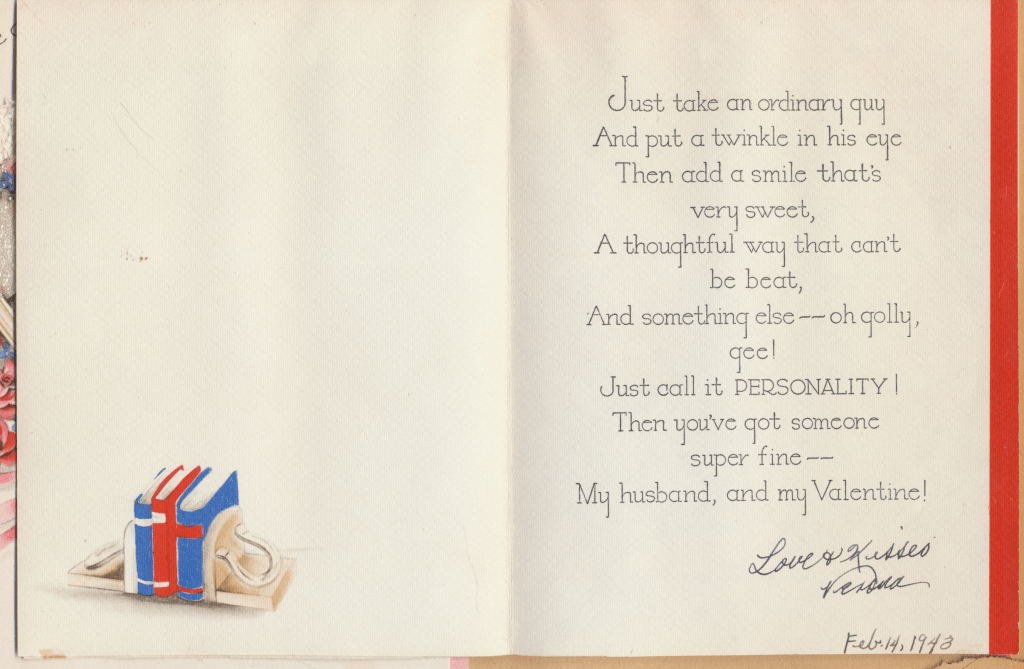 Just take an ordinary guy
And put a twinkle in his eye
Then add a smile that's
very sweet,
A thoughtful way that can't
be beat,
And something else -- oh golly,
gee!
Just call it PERSONALITY!
Then you've got someone
super fine --
My husband, and my Valentine!
Love & Kisses
Verona
Feb. 14, 1943